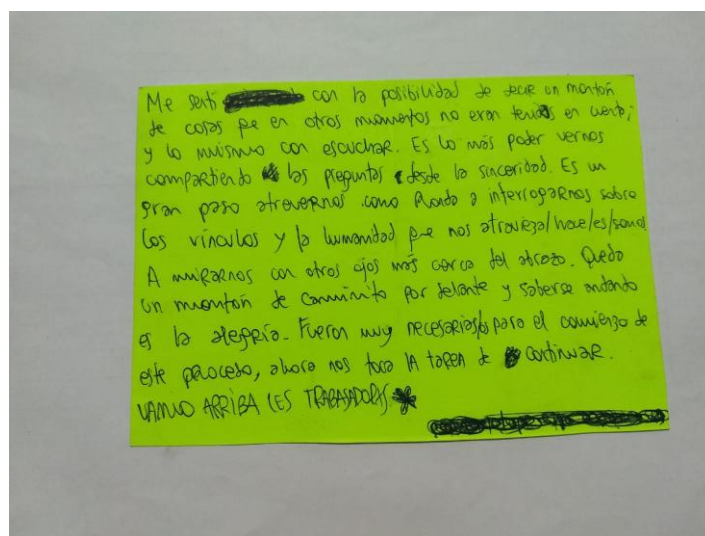 Me sentí con la posibilidad de decir un montón
de cosas que en otros momentos no eran tenidas en cuenta;
y lo mismo con escuchar. Es lo más poder vernos
compartiendo las preguntas desde la sinceridad. Es un
gran paso atrevernos como Ronda a interrogarnos sobre
los vínculos y la humanidad que nos atravieza/hace/es/somos
A miRARnos con otros ojos más cerca del abrazo. Queda
un montón de caminito por delante y saberse andando
es la alegría. Fueron muy necesarias/os para el comienzo de
este proceso, ahora nos toca la tarea de continuar.
VAMOO ARRIBA LES TRABAJADORAS.